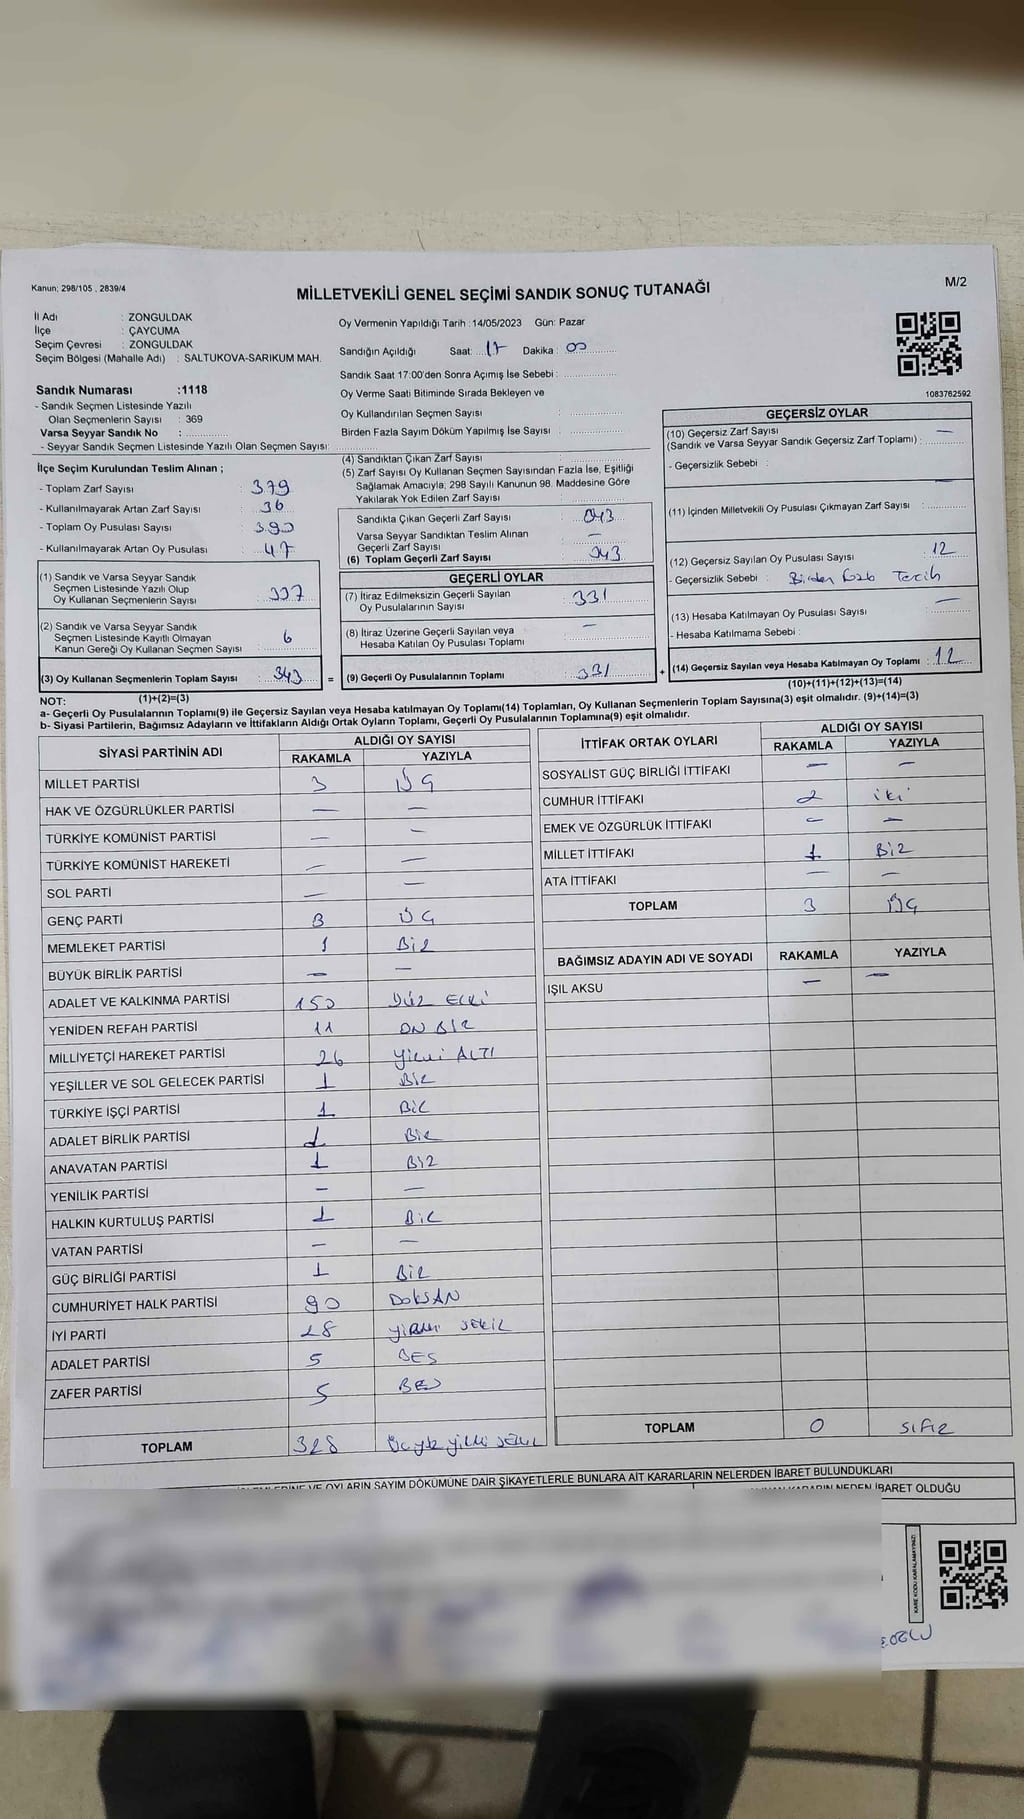 Kanun; 298/105 , 2839/4
MİLLETVEKİLİ GENEL SEÇİMİ SANDIK SONUÇ TUTANAĞI
M/2
İl Adı : ZONGULDAK
İlçe : ÇAYCUMA
Seçim Çevresi : ZONGULDAK
Seçim Bölgesi (Mahalle Adı) : SALTUKOVA-SARIKUM MAH.
Sandık Numarası :1118
- Sandık Seçmen Listesinde Yazılı
Olan Seçmenlerin Sayısı : 369
Varsa Seyyar Sandık No :
- Seyyar Sandık Seçmen Listesinde Yazılı Olan Seçmen Sayısı:
Oy Vermenin Yapıldığı Tarih :14/05/2023 Gün: Pazar
Sandığın Açıldığı Saat: 17 Dakika : 00
Sandık Saat 17:00'den Sonra Açımış İse Sebebi :
Oy Verme Saati Bitiminde Sırada Bekleyen ve
Oy Kullandırılan Seçmen Sayısı :
Birden Fazla Sayım Döküm Yapılmış İse Sayısı :
1083762592
İlçe Seçim Kurulundan Teslim Alınan ;
- Toplam Zarf Sayısı : 379
- Kullanılmayarak Artan Zarf Sayısı : 36
- Toplam Oy Pusulası Sayısı : 390
- Kullanılmayarak Artan Oy Pusulası : 47
(1) Sandık ve Varsa Seyyar Sandık
Seçmen Listesinde Yazılı Olup
Oy Kullanan Seçmenlerin Sayısı : 337
(2) Sandık ve Varsa Seyyar Sandık
Seçmen Listesinde Kayıtlı Olmayan
Kanun Gereği Oy Kullanan Seçmen Sayısı : 6
(3) Oy Kullanan Seçmenlerin Toplam Sayısı : 343 =
(4) Sandıktan Çıkan Zarf Sayısı :
(5) Zarf Sayısı Oy Kullanan Seçmen Sayısından Fazla İse, Eşitliği
Sağlamak Amacıyla; 298 Sayılı Kanunun 98. Maddesine Göre
Yakılarak Yok Edilen Zarf Sayısı :
Sandıkta Çıkan Geçerli Zarf Sayısı : 343
Varsa Seyyar Sandıktan Teslim Alınan
Geçerli Zarf Sayısı : —
(6) Toplam Geçerli Zarf Sayısı : 343
GEÇERLİ OYLAR
(7) İtiraz Edilmeksizin Geçerli Sayılan
Oy Pusulalarının Sayısı : 331
(8) İtiraz Üzerine Geçerli Sayılan veya
Hesaba Katılan Oy Pusulası Toplamı : —
(9) Geçerli Oy Pusulalarının Toplamı : 331 +
GEÇERSİZ OYLAR
(10) Geçersiz Zarf Sayısı —
(Sandık ve Varsa Seyyar Sandık Geçersiz Zarf Toplamı) :
- Geçersizlik Sebebi :
(11) İçinden Milletvekili Oy Pusulası Çıkmayan Zarf Sayısı : —
(12) Geçersiz Sayılan Oy Pusulası Sayısı : 12
- Geçersizlik Sebebi : Birden Fazla Tercih
(13) Hesaba Katılmayan Oy Pusulası Sayısı : —
- Hesaba Katılmama Sebebi :
(14) Geçersiz Sayılan veya Hesaba Katılmayan Oy Toplamı : 12
(10)+(11)+(12)+(13)=(14)
NOT: (1)+(2)=(3)
a- Geçerli Oy Pusulalarının Toplamı(9) ile Geçersiz Sayılan veya Hesaba katılmayan Oy Toplamı(14) Toplamları, Oy Kullanan Seçmenlerin Toplam Sayısına(3) eşit olmalıdır. (9)+(14)=(3)
b- Siyasi Partilerin, Bağımsız Adayların ve İttifakların Aldığı Ortak Oyların Toplamı, Geçerli Oy Pusulalarının Toplamına(9) eşit olmalıdır.
SİYASİ PARTİNİN ADI ALDIĞI OY SAYISI
RAKAMLA YAZIYLA
MİLLET PARTİSİ 3 ÜÇ
HAK VE ÖZGÜRLÜKLER PARTİSİ — —
TÜRKİYE KOMÜNİST PARTİSİ — —
TÜRKİYE KOMÜNİST HAREKETİ — —
SOL PARTİ — —
GENÇ PARTİ 3 ÜÇ
MEMLEKET PARTİSİ 1 BİR
BÜYÜK BİRLİK PARTİSİ — —
ADALET VE KALKINMA PARTİSİ 150 YÜZ ELLİ
YENİDEN REFAH PARTİSİ 11 ON BİR
MİLLİYETÇİ HAREKET PARTİSİ 26 YİRMİ ALTI
YEŞİLLER VE SOL GELECEK PARTİSİ 1 BİR
TÜRKİYE İŞÇİ PARTİSİ 1 BİR
ADALET BİRLİK PARTİSİ 1 BİR
ANAVATAN PARTİSİ 1 BİR
YENİLİK PARTİSİ — —
HALKIN KURTULUŞ PARTİSİ 1 BİR
VATAN PARTİSİ — —
GÜÇ BİRLİĞİ PARTİSİ 1 BİR
CUMHURİYET HALK PARTİSİ 90 DOKSAN
İYİ PARTİ 28 YİRMİ SEKİZ
ADALET PARTİSİ 5 BEŞ
ZAFER PARTİSİ 5 BEŞ
TOPLAM 328 Üçyüz yirmi sekiz
İTTİFAK ORTAK OYLARI ALDIĞI OY SAYISI
RAKAMLA YAZIYLA
SOSYALİST GÜÇ BİRLİĞİ İTTİFAKI — —
CUMHUR İTTİFAKI 2 iki
EMEK VE ÖZGÜRLÜK İTTİFAKI — —
MİLLET İTTİFAKI 1 BİR
ATA İTTİFAKI — —
TOPLAM 3 ÜÇ
BAĞIMSIZ ADAYIN ADI VE SOYADI RAKAMLA YAZIYLA
IŞIL AKSU — —
TOPLAM 0 SIFIR
VE OYLARIN SAYIM DÖKÜMÜNE DAİR ŞİKAYETLERLE BUNLARA AİT KARARLARIN NELERDEN İBARET BULUNDUKLARI
NEDEN İBARET OLDUĞU
KARE KODU KARALAMAYINIZ!